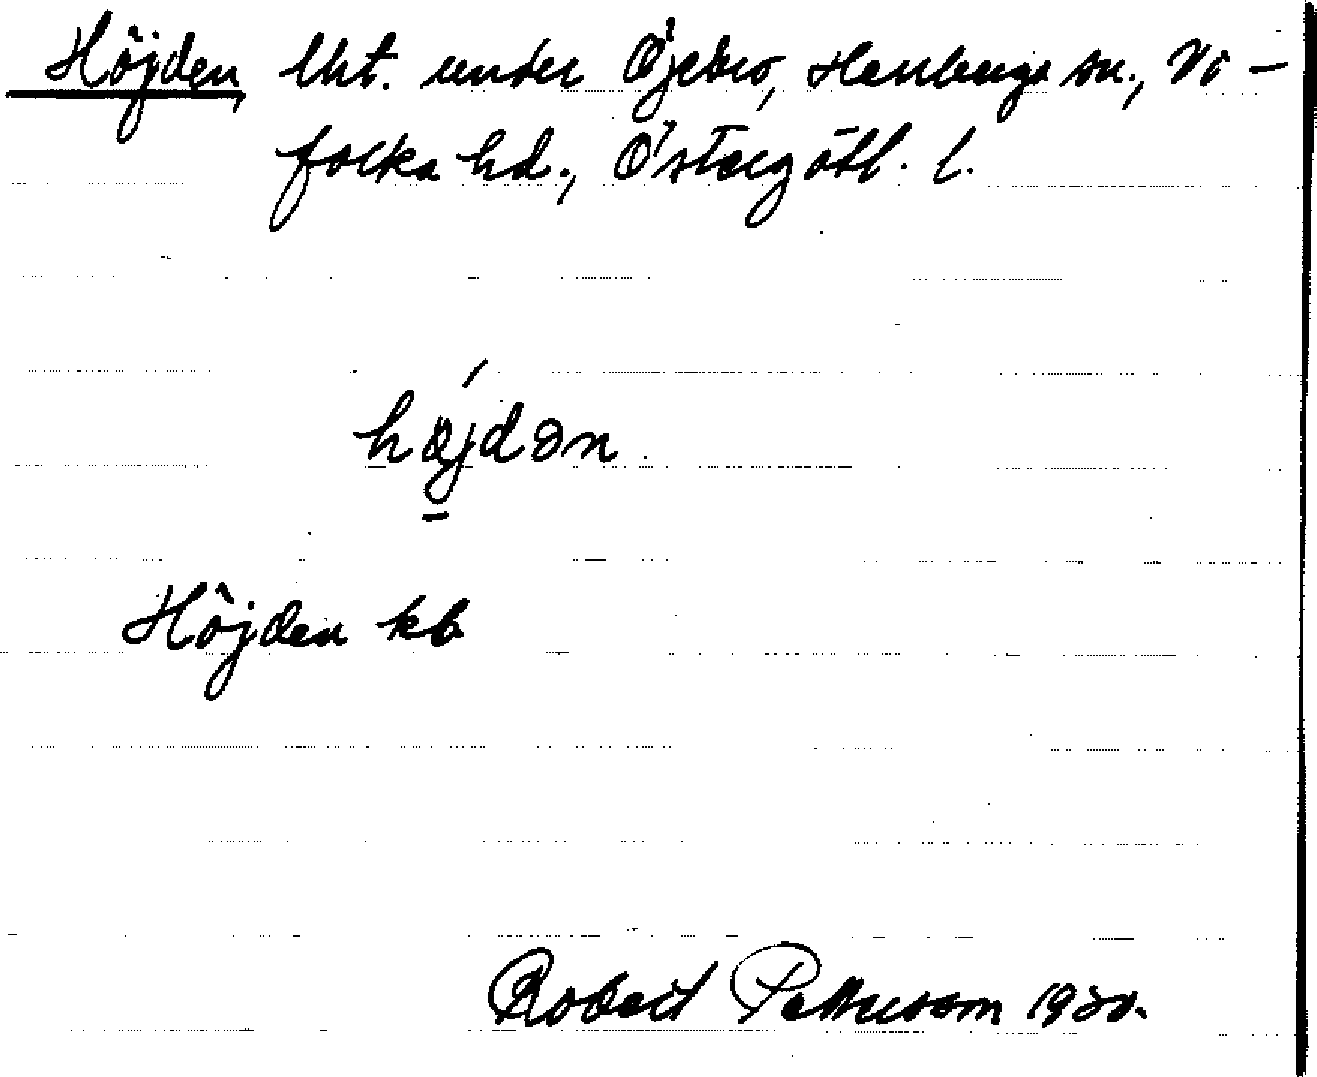 Höjden, lht. under Öjebro, Herrberga sn., Vi-
folka hd., Östergötl. l.
hǿjdən
Höjden kb
Robert Pettersson 1930.